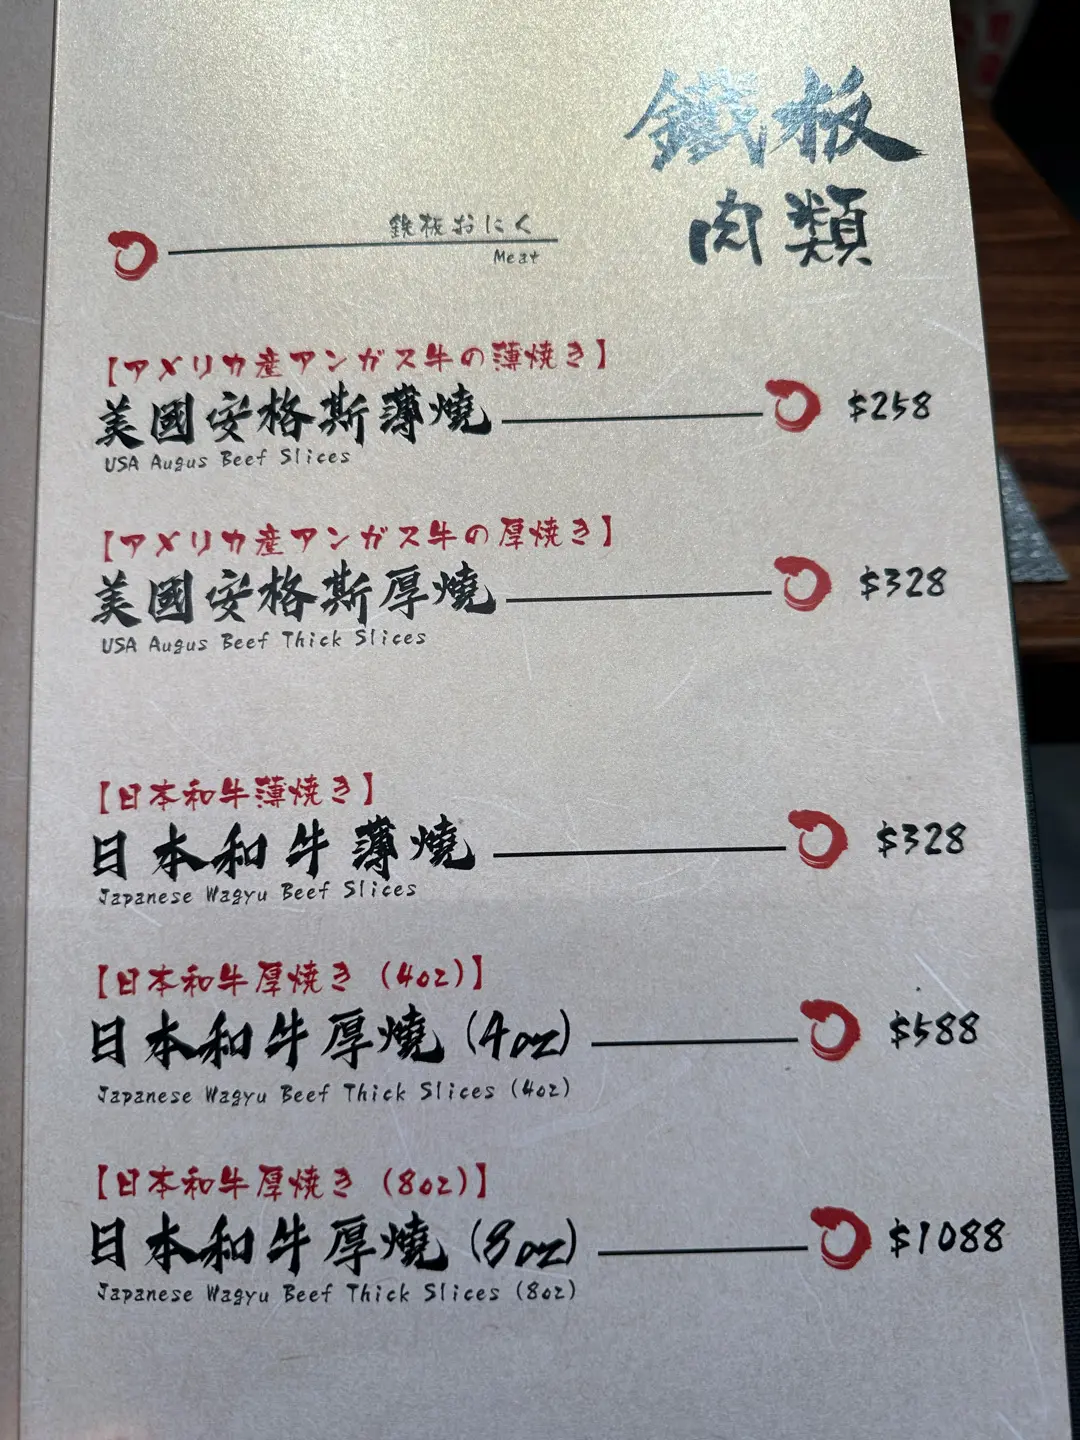 鐵板
肉類
鉄板おにく
Meat
【アメリカ産アンガス牛の薄焼き】
美國安格斯薄燒
$258
USA Augus Beef Slices
【アメリカ産アンガス牛の厚焼き】
美國安格斯厚燒
$328
USA Augus Beef Thick Slices
【日本和牛薄焼き】
日本和牛薄燒
$328
Japanese Wagyu Beef Slices
【日本和牛厚焼き (4oz)】
日本和牛厚燒 (4oz)
$588
Japanese Wagyu Beef Thick Slices (4oz)
【日本和牛厚焼き (8oz)】
日本和牛厚燒 (8oz)
$1088
Japanese Wagyu Beef Thick Slices (8oz)